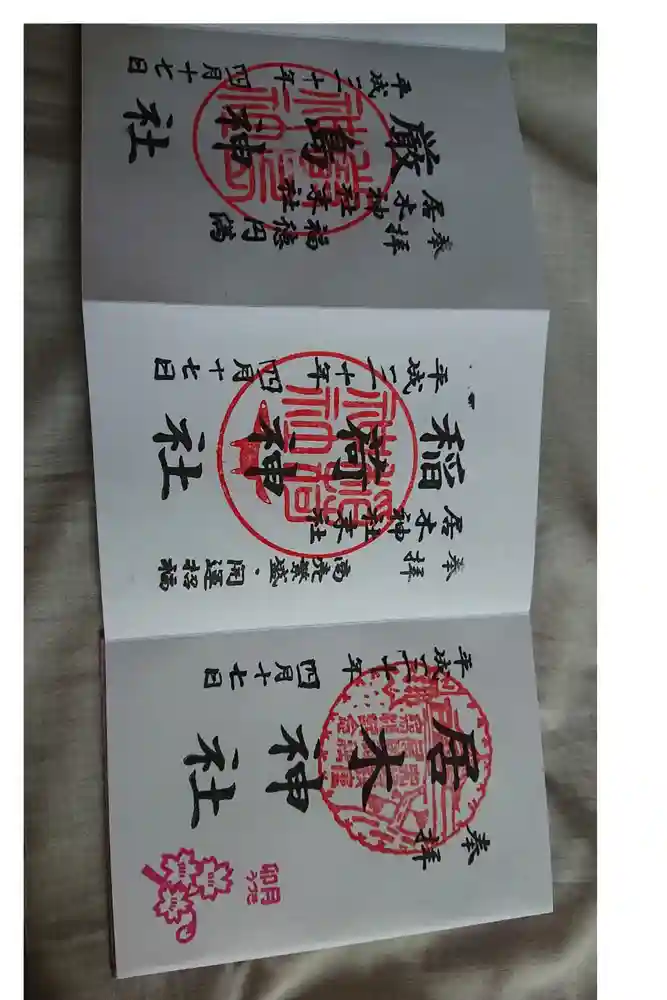 奉拝
居木神社
平成三十年四月十七日
卯月
うづき
奉拝 商売繁盛・開運招福
居木神社末社
稲荷神社
平成三十年四月十七日
奉拝 福徳円満
居木神社末社
厳島神社
平成三十年四月十七日